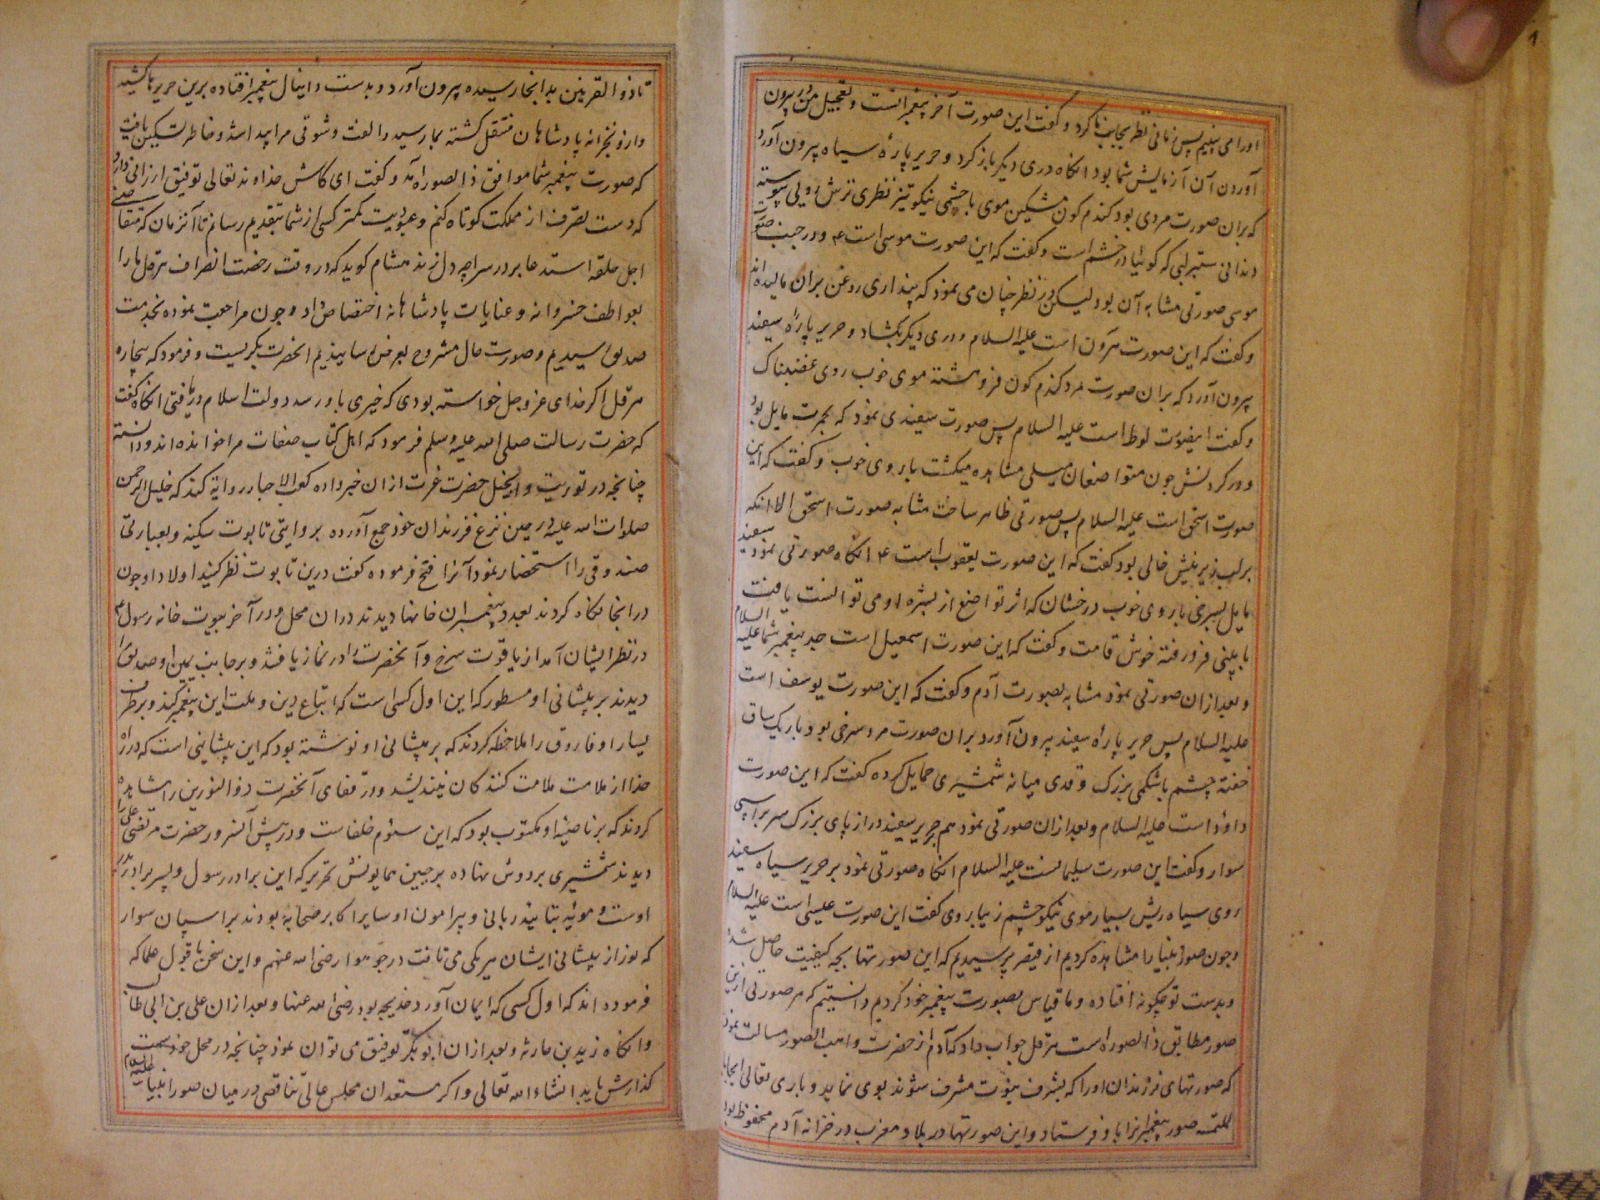 او را می بینیم پس زمانی نظر بجانب ما کرد و گفت این صورت آخر پیغمبرانست و تعجیل من در بیرون
آوردن آن آزمایش شما بود انکاه دری دیکر باز کرد و حریر پارهٔ سیاه بیرون آورد
که بران صورت مردی بود کندم کون مشکین موی با چشمی نیکو تیز نظری ترش رویی پیوسته
دندانی ستبر لبی که کوئیا در خشم است و گفت که این صورت موسی است ۴ و در جنب صورت
موسی صورتی مشابه آن بود لیکن در نظر چنان می نمود که پنداری روغن بران مالیده اند
و گفت که این صورت هرون است علیه السلام و دری دیکر بکشاد و حریر پاره سفید
بیرون آورد که بران صورت مرد کندم کون فروهشته موی خوب روی غضبناک
و گفت اینصورت لوط است علیه السلام پس صورت سفیدی نمود که بحمرت مایل بود
و در کردنش چون متواضعان میلی مشاهده میکشت با روی خوب و گفت که این
صورت اسحق است علیه السلام پس صورتی ظاهر ساخت مشابه صورت اسحق الا انکه
بر لب زیرینش خالی بود گفت که این صورت یعقوب است ۴ انکاه صورتی نمود سفید
مایل بسرخی با روی خوب درخشان که اثر تواضع از بشره او می توانست یافت
با بینی فرو رفته خوش قامت و گفت که این صورت اسمعیل است جد پیغمبر شما علیه السلام
و بعد ازان صورتی نمود مشابه بصورت آدم و گفت که این صورت یوسف است
علیه السلام پس حریر پاره سفید بیرون آورد بران صورت مرد سرخی بود باریک ساق
خفته چشم با شکمی بزرک و قدی میانه شمشیری حمایل کرده گفت که این صورت
داود است علیه السلام و بعد ازان صورتی نمود هم بر حریر سفید دراز پای بزرک سر بر اسپی
سوار و گفت این صورت سلیمانست علیه السلام انکاه صورتی نمود بر حریر سیاه سفید
روی سیاه ریش بسیار موی نیکو چشم زیبا روی گفت این صورت عیسی است علیه السلام
و چون صور انبیا را مشاهده کردیم از قیصر پرسیدیم که این صورتها بچه کیفیت حاصل شد
و بدست تو چکونه افتاده و ما قیاس بصورت پیغمبر خود کردیم دانستیم که هر صورتی ازین
صور مطابق ذا الصوره است هرقل جواب داد که آدم از حضرت واهب الصور مسالت نمود
که صورتهای فرزندان او را که بشرف نبوت مشرف شوند بوی نماید و باری تعالی ایجابا
للملتمسه صور پیغمبران را باو فرستاد و این صورتها در بلاد مغرب در خزانه آدم محفوظ بود
تا ذو القرنین بدانجا رسیده بیرون آورد و بدست دانیال پیغمبر افتاده برین حریرها کشید
و از و بخزانه پادشاهان منتقل کشته بما رسید و الفت و شوقی مرا پیدا شد و خاطر تسکین یافت
که صورت پیغمبر شما موافق ذا الصوره آمد و گفت ای کاش خداوند تعالی توفیق ارزانی دارد
که دست تصرف از مملکت کوتاه کنم و عبودیت کمتر کسی از شما بتقدیم رسانم تا آنزمان که متقاضی
اجل حلقه استدعا بر در سراچه دل زند هشام کوید که در وقت رخصت انصراف هرقل ما را
بعواطف خسروانه و عنایات پادشاهانه اختصاص داد و چون مراجعت نموده بخدمت
صدیق رسیدیم و صورت حال مشروح بعرض رسانیدیم انحضرت بکریست و فرمود که بیچاره
هرقل اکر خدای عز و جل خواسته بودی که خیری باو رسد دولت اسلام دریافتی انکاه گفت
که حضرت رسالت صلی الله علیه وسلم فرمود که اهل کتاب صفات مرا خوانده اند و دانسته
چنانچه در توریت و انجیل حضرت عزت ازان خبر داده کعب الاحبار روایه کند که خلیل الرحمن
صلوات الله علیه در حین نزع فرزندان خود جمع آورده بروایتی تابوت سکینه و بعبارتی
صندوقی را استحضار نمود آنرا فتح فرموده گفت درین تابوت نظر کنید اولاد او چون
در انجا نکاه کردند بعدد پیغمبران خانها دیدند دران محل و در آخر بیوت خانه رسول
در نظر ایشان آمد از یاقوت سرخ و آنحضرت را در نماز یافتند و بر جانب یمین او صدیق را
دیدند بر پیشانی او مسطور که این اول کسی است که اتباع دین و ملت این پیغمبر کند و بر طرف
یسار او فاروق را ملاحظه کردند که بر پیشانی او نوشته بود که این پیشاپینی است که در راه
خدا از ملامت ملامت کنندکان نیندیشد و در قفای آنحضرت ذو النورین را مشاهده
کردند که بر ناصیه او مکتوب بود که این سئوم خلفاست و در پیش آنسرور حضرت مرتضی علی را
دیدند شمشیری بر دوش نهاده بر جبین همایونش تحریر که این برادر رسول و پسر برادر پدر
اوست و موئید بتایید ربانی و پیرامون او سایر اکابر صحابه بودند بر اسپان سوار
که نور از پیشانی ایشان هر یکی می تافت در جو هوا رضی الله عنهم و این سخن با قول علما که
فرموده اند که اول کسی که ایمان آورد خدیجه بود رضی الله عنها و بعد ازان علی بن ابی طالب
وانکاه زید بن حارثه و بعد ازان ابو بکر توفیق می توان نمود چنانچه در محل خود سمت
گذارش یابد انشاء الله تعالی و اکر مستعدان مجلس عالی تناقضی در میان صور انبیا علیهم السلام